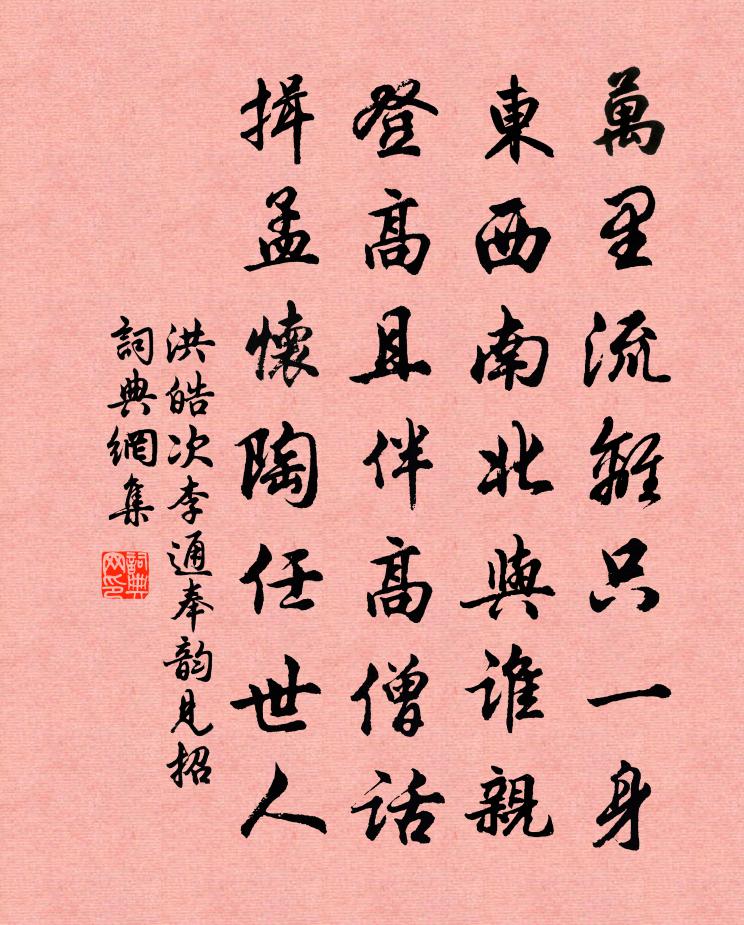 萬里流離只一身
東西南北與誰親
登高且伴高僧話
揖孟懷陶任世人
洪皓次李通奉韵見招
詞典網集
詞典网印